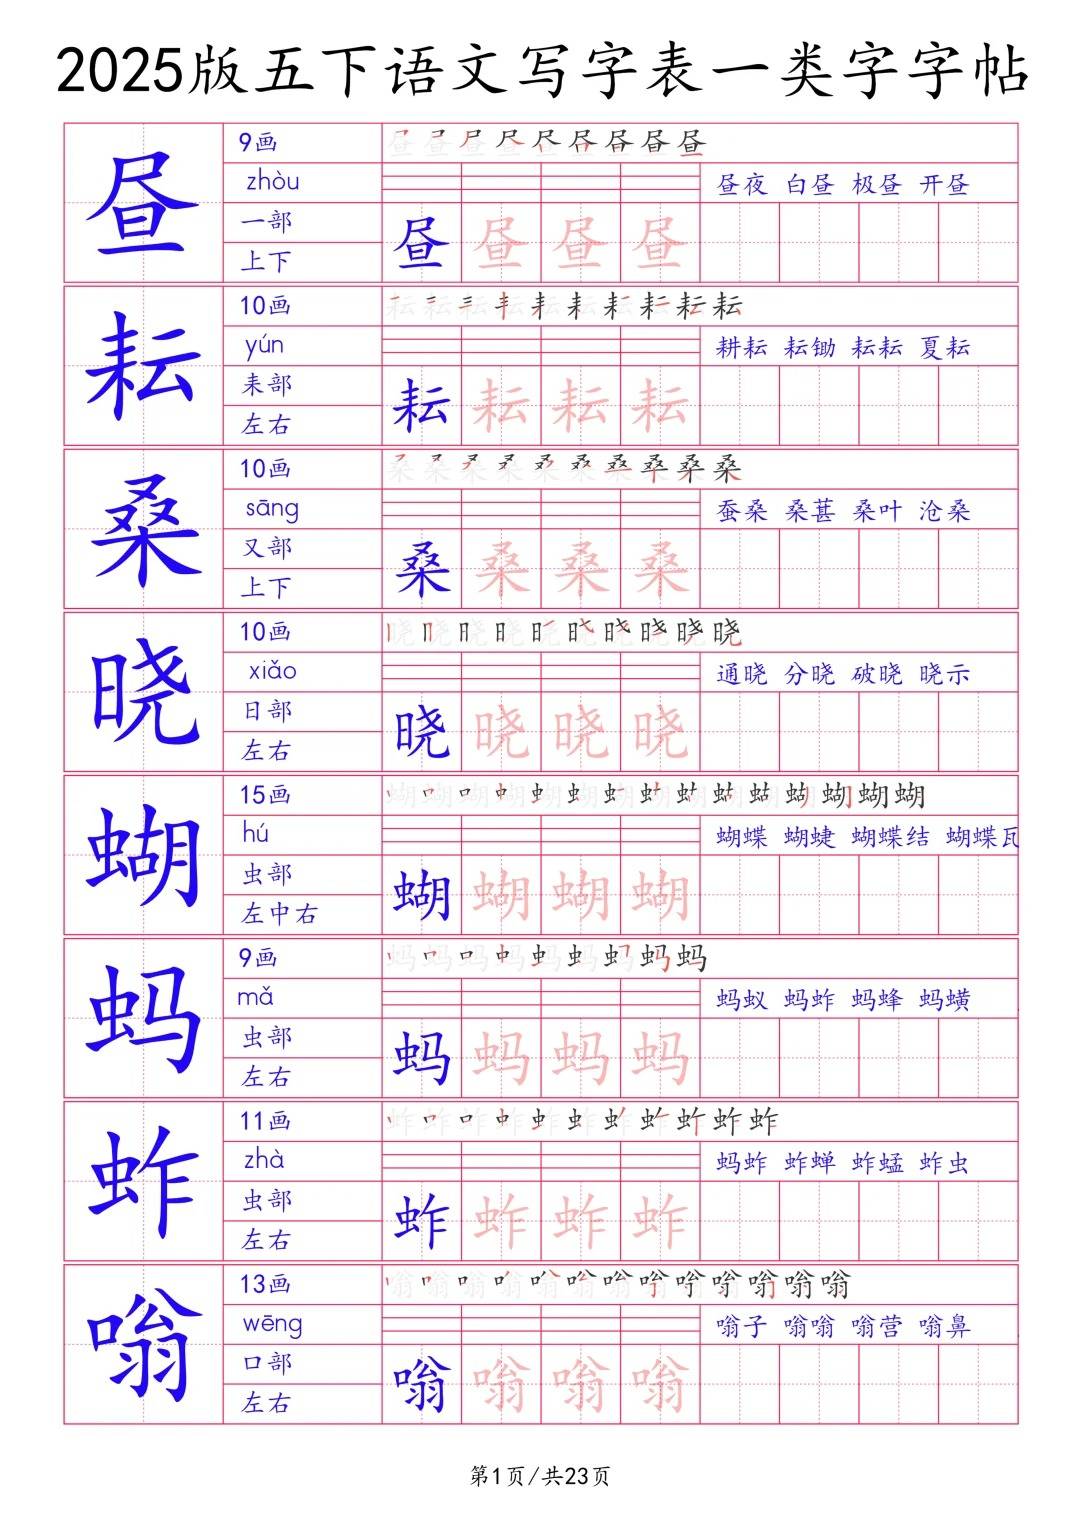 2025版五下语文写字表一类字字帖
昼
9画
zhòu
昼夜 白昼 极昼 开昼
一部
上下
昼 昼 昼 昼
耘
10画
yún
耕耘 耘锄 耘耘 夏耘
耒部
左右
耘 耘 耘 耘
桑
10画
sāng
蚕桑 桑葚 桑叶 沧桑
又部
上下
桑 桑 桑 桑
晓
10画
xiǎo
通晓 分晓 破晓 晓示
日部
左右
晓 晓 晓 晓
蝴
15画
hú
蝴蝶 蝴蜨 蝴蝶结 蝴蝶瓦
虫部
左中右
蝴 蝴 蝴 蝴
蚂
9画
mǎ
蚂蚁 蚂蚱 蚂蜂 蚂蟥
虫部
左右
蚂 蚂 蚂 蚂
蚱
11画
zhà
蚂蚱 蚱蝉 蚱蜢 蚱虫
虫部
左右
蚱 蚱 蚱 蚱
嗡
13画
wēng
嗡子 嗡嗡 嗡营 嗡鼻
口部
左右
嗡 嗡 嗡 嗡
第1页/共23页